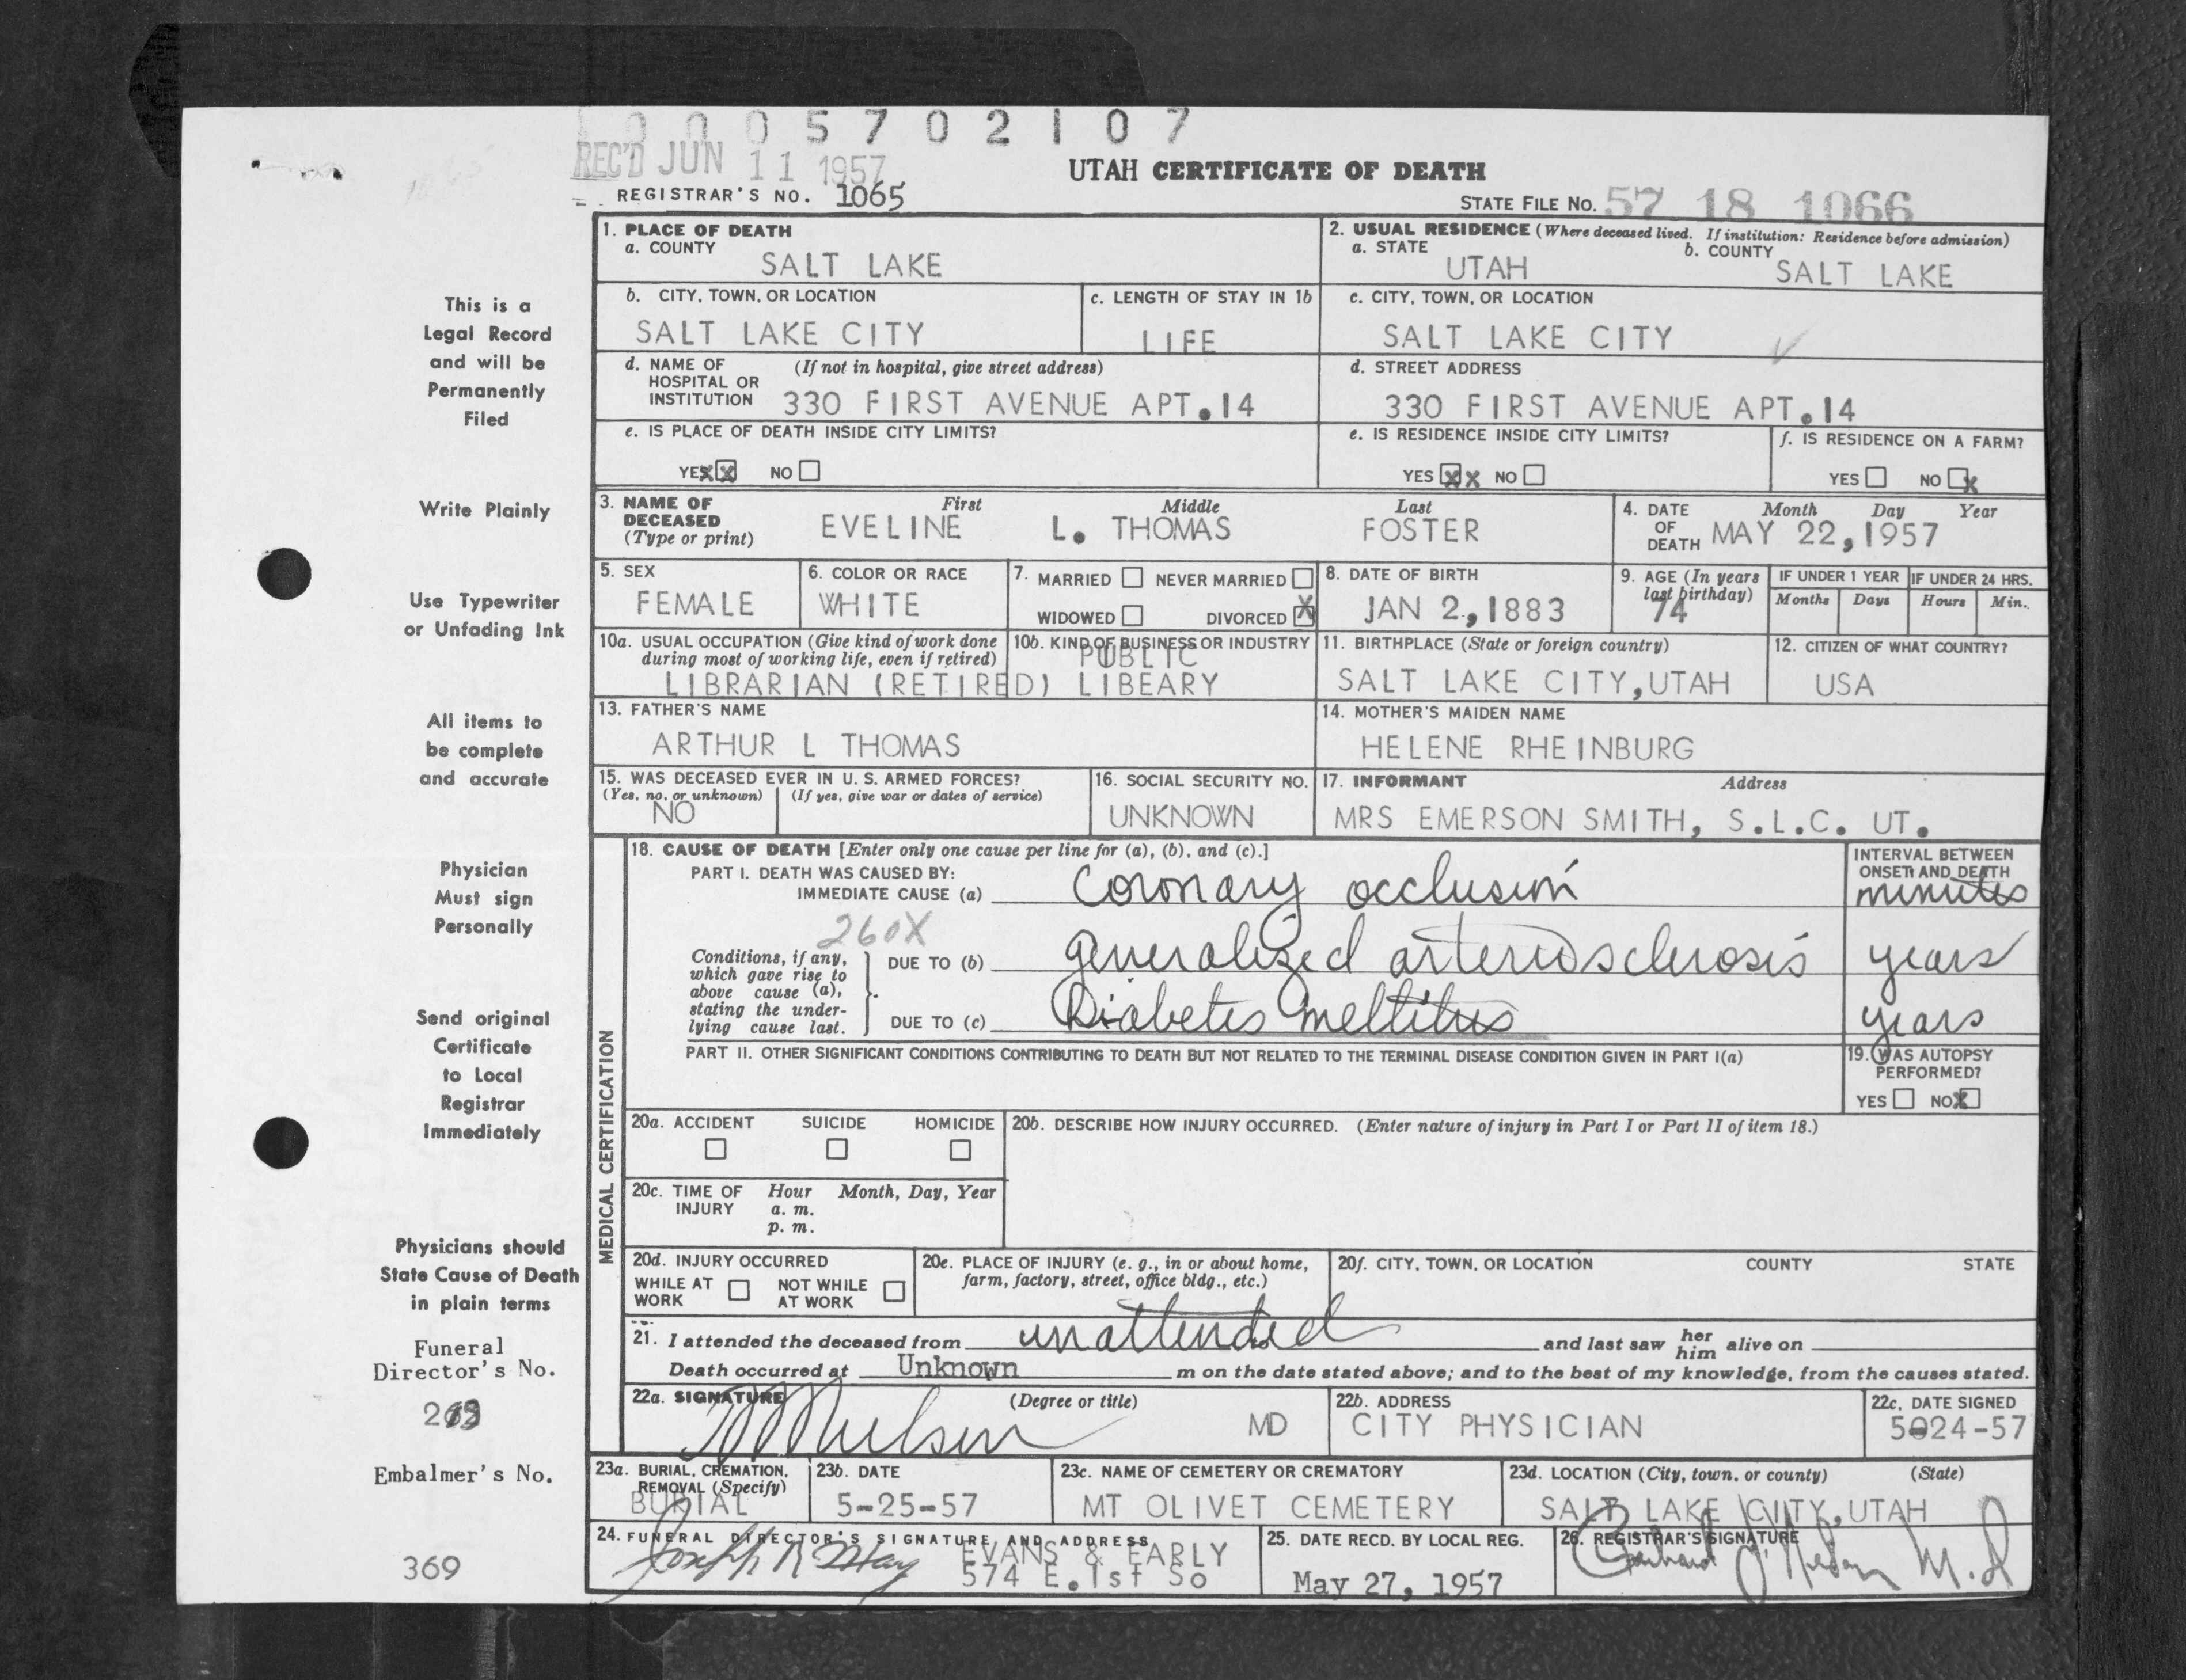 0005702107
REC'D JUN 11 1957
UTAH CERTIFICATE OF DEATH
REGISTRAR'S NO. 1065
STATE FILE NO. 57 18 1066
1. PLACE OF DEATH
a. COUNTY
SALT LAKE
2. USUAL RESIDENCE (Where deceased lived. If institution: Residence before admission)
a. STATE b. COUNTY
UTAH SALT LAKE
This is a
Legal Record
and will be
Permanently
Filed
b. CITY, TOWN, OR LOCATION
SALT LAKE CITY
c. LENGTH OF STAY IN 1b
LIFE
c. CITY, TOWN, OR LOCATION
SALT LAKE CITY
d. NAME OF (If not in hospital, give street address)
HOSPITAL OR
INSTITUTION 330 FIRST AVENUE APT.14
d. STREET ADDRESS
330 FIRST AVENUE APT.14
e. IS PLACE OF DEATH INSIDE CITY LIMITS?
YES XX NO
e. IS RESIDENCE INSIDE CITY LIMITS?
YES XX NO
f. IS RESIDENCE ON A FARM?
YES NO X
Write Plainly
3. NAME OF First Middle Last
DECEASED
(Type or print) EVELINE L. THOMAS FOSTER
4. DATE Month Day Year
OF
DEATH MAY 22,1957
Use Typewriter
or Unfading Ink
5. SEX
FEMALE
6. COLOR OR RACE
WHITE
7. MARRIED NEVER MARRIED
WIDOWED DIVORCED X
8. DATE OF BIRTH
JAN 2,1883
9. AGE (In years
last birthday)
74
IF UNDER 1 YEAR IF UNDER 24 HRS.
Months Days Hours Min.
10a. USUAL OCCUPATION (Give kind of work done
during most of working life, even if retired)
LIBRARIAN (RETIRED)
10b. KIND OF BUSINESS OR INDUSTRY
PUBLIC
LIBEARY
11. BIRTHPLACE (State or foreign country)
SALT LAKE CITY,UTAH
12. CITIZEN OF WHAT COUNTRY?
USA
All items to
be complete
and accurate
13. FATHER'S NAME
ARTHUR L THOMAS
14. MOTHER'S MAIDEN NAME
HELENE RHEINBURG
15. WAS DECEASED EVER IN U. S. ARMED FORCES?
(Yes, no, or unknown) (If yes, give war or dates of service)
NO
16. SOCIAL SECURITY NO.
UNKNOWN
17. INFORMANT Address
MRS EMERSON SMITH, S.L.C. UT.
Physician
Must sign
Personally
MEDICAL CERTIFICATION
18. CAUSE OF DEATH [Enter only one cause per line for (a), (b), and (c).]
PART I. DEATH WAS CAUSED BY:
IMMEDIATE CAUSE (a) Coronary occlusion
INTERVAL BETWEEN
ONSET AND DEATH
minutes
260X
Conditions, if any,
which gave rise to
above cause (a),
stating the under-
lying cause last.
DUE TO (b) generalized arteriosclerosis years
DUE TO (c) Diabetes mellitus years
Send original
Certificate
to Local
Registrar
Immediately
PART II. OTHER SIGNIFICANT CONDITIONS CONTRIBUTING TO DEATH BUT NOT RELATED TO THE TERMINAL DISEASE CONDITION GIVEN IN PART I(a)
19. WAS AUTOPSY
PERFORMED?
YES NO X
20a. ACCIDENT SUICIDE HOMICIDE
20b. DESCRIBE HOW INJURY OCCURRED. (Enter nature of injury in Part I or Part II of item 18.)
20c. TIME OF Hour Month, Day, Year
INJURY a. m.
p. m.
Physicians should
State Cause of Death
in plain terms
20d. INJURY OCCURRED
WHILE AT NOT WHILE
WORK AT WORK
20e. PLACE OF INJURY (e. g., in or about home,
farm, factory, street, office bldg., etc.)
20f. CITY, TOWN, OR LOCATION COUNTY STATE
21. I attended the deceased from unattended and last saw her him alive on
Death occurred at Unknown m on the date stated above; and to the best of my knowledge, from the causes stated.
Funeral
Director's No.
22a. SIGNATURE (Degree or title)
MD
22b. ADDRESS
CITY PHYSICIAN
22c. DATE SIGNED
5-24-57
Embalmer's No.
369
23a. BURIAL, CREMATION,
REMOVAL (Specify)
BURIAL
23b. DATE
5-25-57
23c. NAME OF CEMETERY OR CREMATORY
MT OLIVET CEMETERY
23d. LOCATION (City, town, or county) (State)
SALT LAKE CITY,UTAH
24. FUNERAL DIRECTOR'S SIGNATURE AND ADDRESS
Joseph R May EVANS & EARLY
574 E.1st So
25. DATE RECD. BY LOCAL REG.
May 27, 1957
26. REGISTRAR'S SIGNATURE
M.D